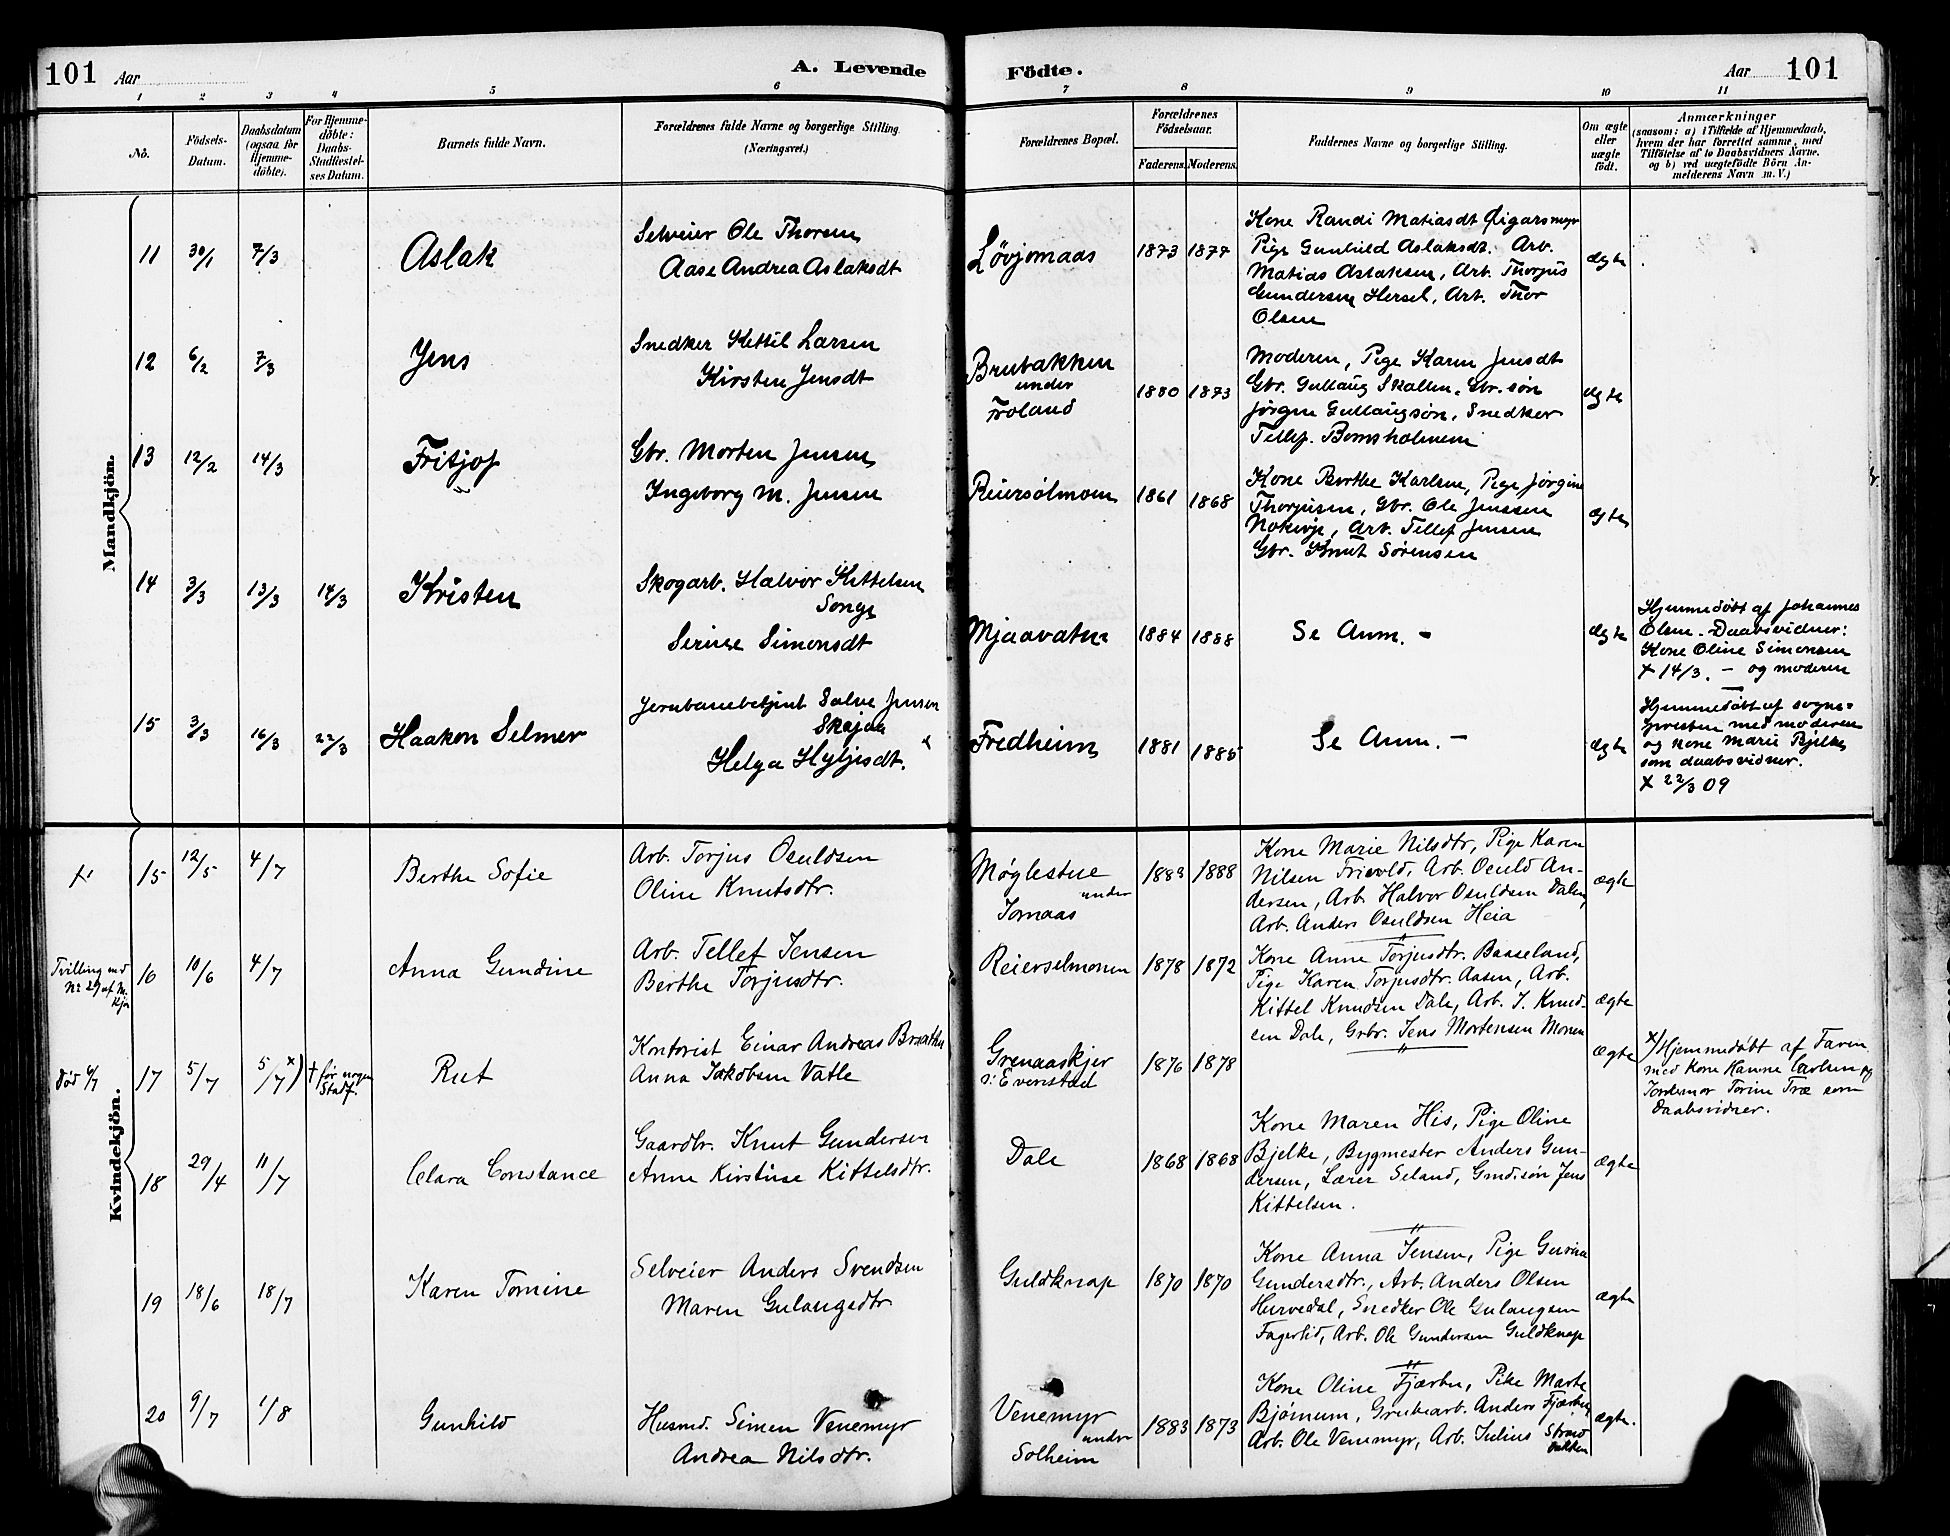 101 Aar A. Levende Födte. Aar 101
1 2 3 4 5 6 7 8 9 10 11
No.
Födsels-
Datum.
Daabsdatum
(ogsaa for
Hjemme-
döbte).
For Hjemme-
döbte:
Daabs-
Stadfæstel-
ses Datum.
Barnets fulde Navn.
Forældrenes fulde Navne og borgerlige Stilling.
(Næringsvei.)
Forældrenes Bopæl.
Forældrenes
Födselsaar.
Faderens. Moderens.
Faddernes Navne og borgerlige Stilling.
Om ægte
eller
uægte
födt.
Anmærkninger
(saasom: a) i Tilfælde af Hjemmedaab,
hvem der har forrettet samme, med
Tilföielse af to Daabsvidners Navne.
og b) ved uægtefödte Börn An-
melderens Navn m. V.)
Mandkjön.
11 30/1 7/3 Aslak
Selveier Ole Thorsen
Aase Andrea Aslaksdt
Løvjomaas 1873 1877
Kone Randi Matiasdt Øigarsmyr
Pige Gunhild Aslaksdt. Arb.
Matias Aslaksen, Arb. Thorjus
Gundersen Hersel, Arb. Thor
Olsen
ægte
12 6/2 7/3 Jens
Snedker Kettil Larsen
Kirsten Jensdt
Brubakken
under
Froland
1880 1873
Moderen, Pige Karen Jensdt
Gbr. Gullaug Skallen, Gbr. søn
Jørgen Gullaugsøn, Snedker
Tellef Bomsholmem
ægte
13 12/2 14/3 Fritjof
Gbr. Morten Jensen
Ingeborg M. Jensen
Reiersølmoen 1861 1868
Kone Berthe Karlsen, Pige Jørgine
Thorjusen, Gbr. Ole Jenssen
Arb. Tellef Jensen
Gbr. Knut Sørensen
ægte
14 3/3 13/3 14/3 Kristen
Skogarb. Halvor Kettelsen
Songe
Serine Simonsdt
Mjaavatn 1884 1888
Se Anm. -
ægte
Hjemmedøbt af Johannes
Olsen. Daabsvidner:
Kone Oline Simonsen
+ 14/3. - og moderen
15 3/3 16/3 22/3 Haakon Selmer
Jernbanebetjent Salve Jensen
Skajaa
Helga Hyljesdt.
Fredheim 1881 1885
Se Anm. -
ægte
Hjemmedøbt af sogne-
presten med moderen
og kone Marie Bjelke
som daabsvidner.
+ 22/3 09
Kvindekjön.
15 12/5 4/7 Berthe Sofie
Arb. Torjus Osuldsen
Oline Knutsdtr.
Møglestue
under
Jomaas
1883 1888
Kone Marie Nilsdtr, Pige Karen
Nilsen Frivold, Arb. Osuld An-
dersen, Arb. Halvor Osuldsen Dalen,
Arb. Anders Osuldsen Heia
ægte
Tvilling med
No 29 af M.
Kjøn
16 10/6 4/7 Anna Gundine
Arb. Tellef Jensen
Berthe Torjusdtr.
Reierselmonen 1878 1872
Kone Anne Torjusdtr. Baaseland,
Pige Karen Torjusdtr. Aasen, Arb.
Kittel Knudsen Dale, Arb. J. Knud-
sen Dale, Grbr. Jens Mortensen Monen
ægte
død 6/7
17 5/7 5/7 x) † før nogen
Stadf.
Rut
Kontorist Einar Andreas Braathe
Anna Jakobsen Vatle
Grenaaskjer
i Evenstad
1876 1878
ægte
x) Hjemmedøbt af Faren
med Kone Hanne Carlsen og
Jordemor Torine Træ som
Daabsvidner.
18 29/4 11/7 Clara Constance
Gaardbr. Knut Gundersen
Anne Kirstine Kittelsdtr.
Dale 1868 1868
Kone Maren His, Pige Oline
Bjelke, Bygmester Anders Gun-
dersen, Lærer Seland, Grndsøn Jens
Kittelsen.
ægte
19 18/6 18/7 Karen Tomine
Selveier Anders Svendsen
Maren Gulaugsdtr
Guldknap 1870 1870
Kone Anna Jensen, Pige Gurine
Gundersdtr., Arb. Anders Olsen
Hurvedal, Snedker Ole Gulaugsen
Fagerlid, Arb. Ole Gundersen Guldknap
ægte
20 9/7 1/8 Gunhild
Husmd. Simen Venemyr
Andrea Nilsdtr.
Venemyr
under
Solheim
1883 1873
Kone Oline Fjærbu, Pike Marte
Bjørnum, Grubearb. Anders Fjærbu,
Arb. Ole Venemyr, Arb. Julius Strand-
bakken
ægte.